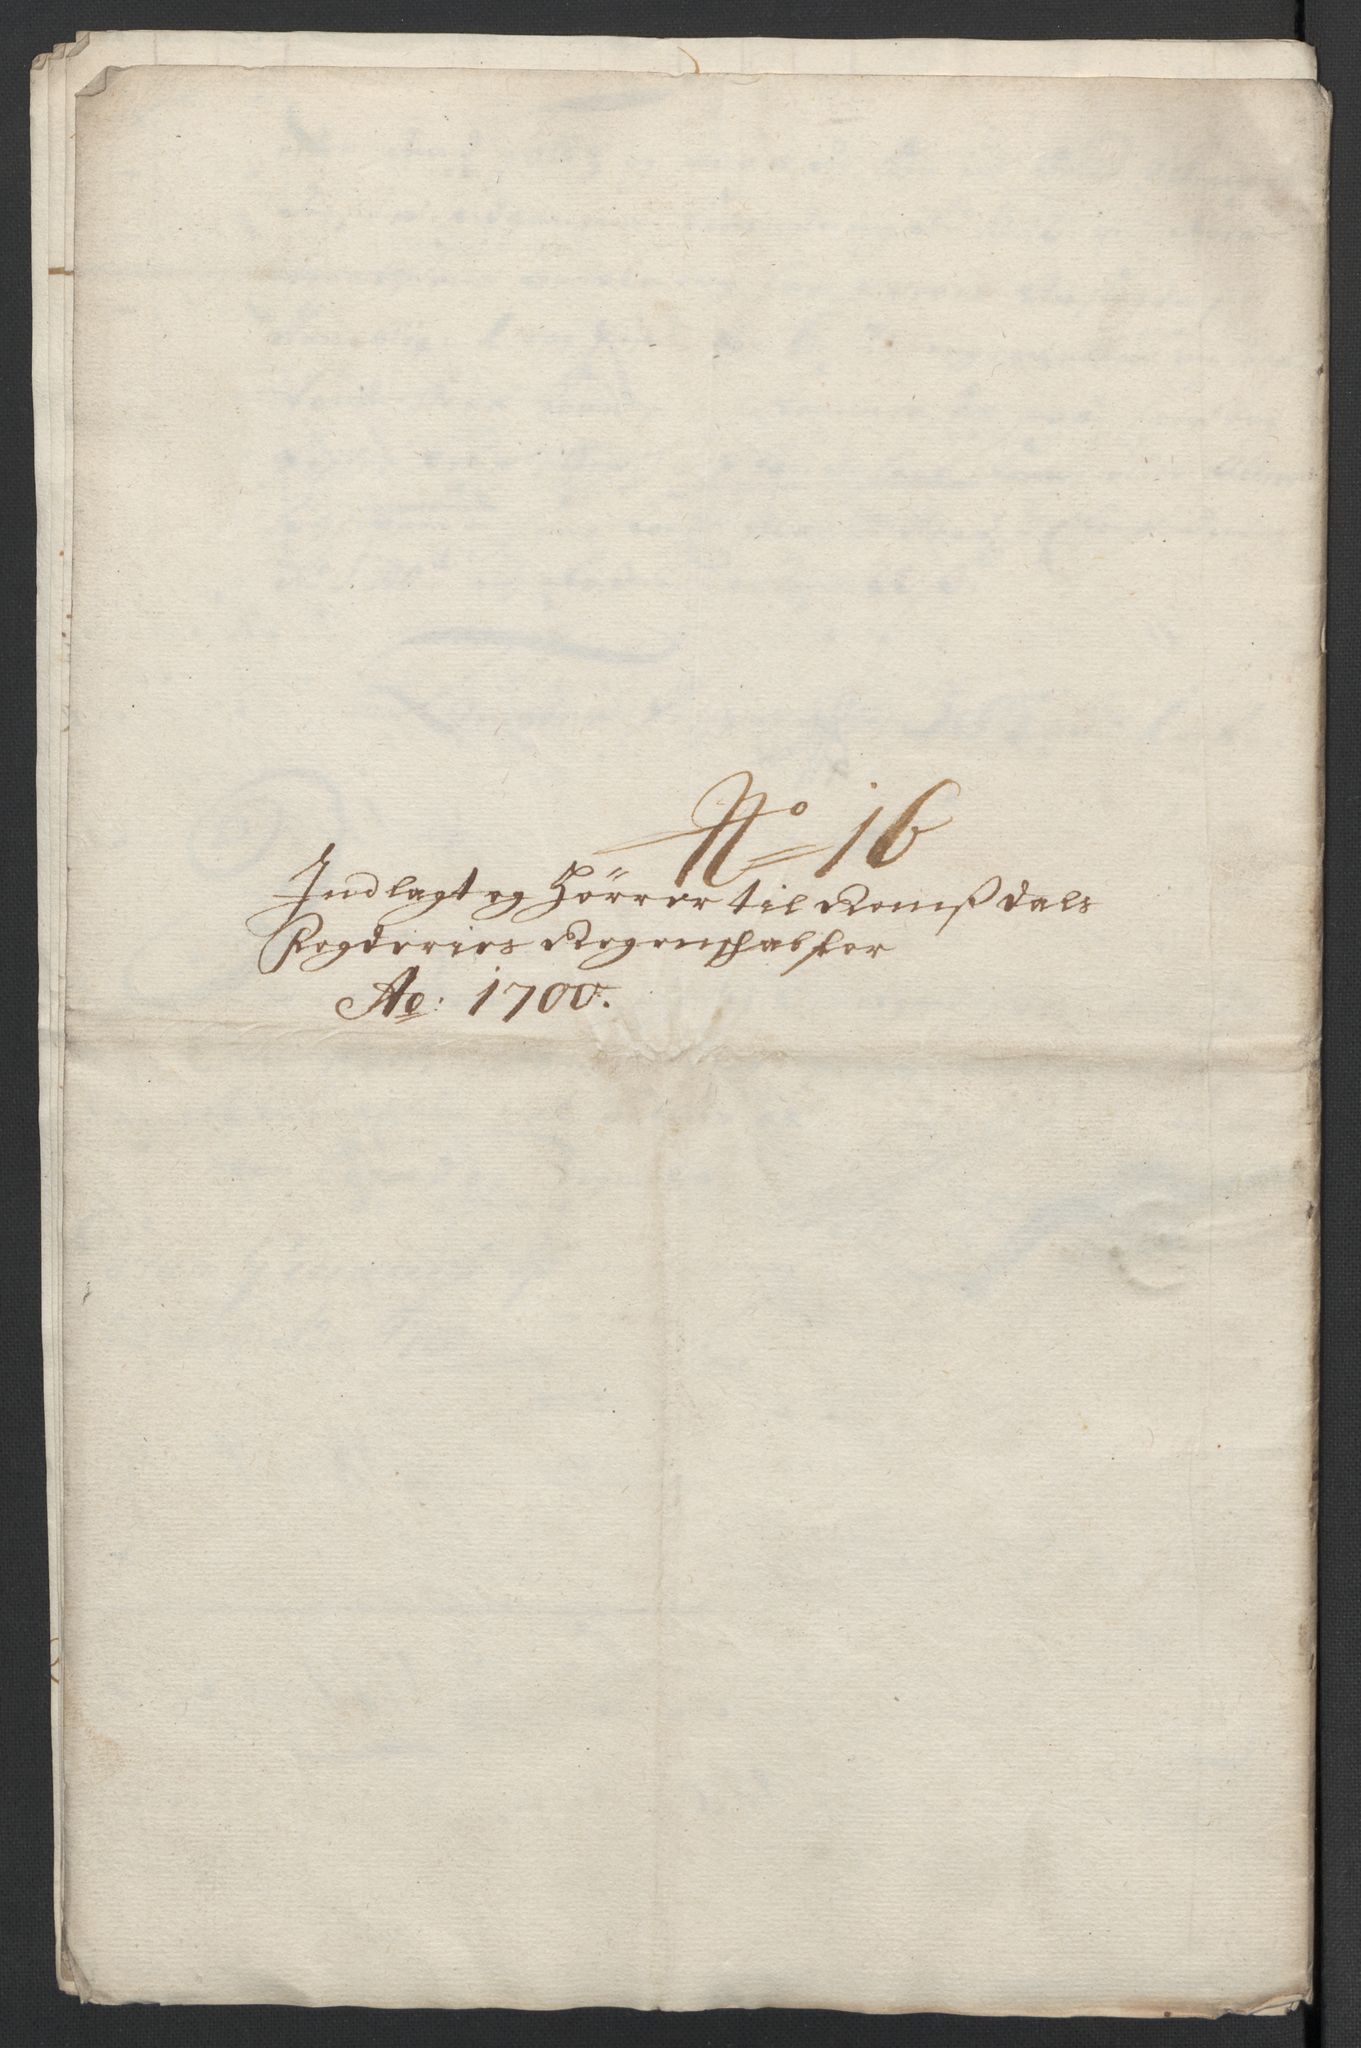 No 16
Indlagt og Hörrer til Romßdals
Fogderies Regenschab for
Ao: 1700.